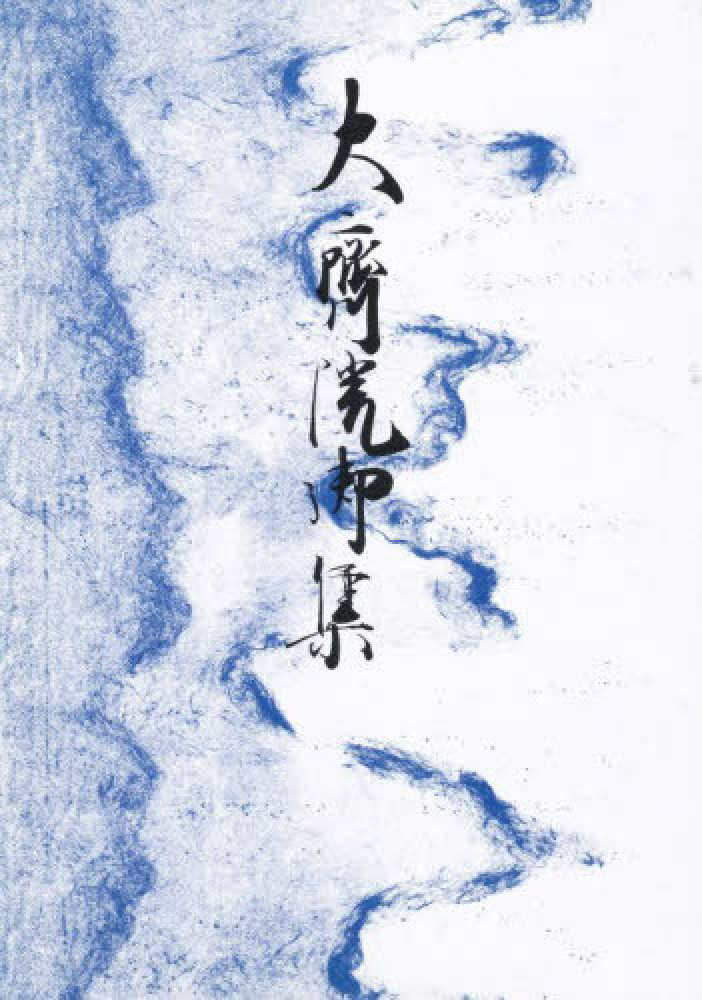 大齋院御集